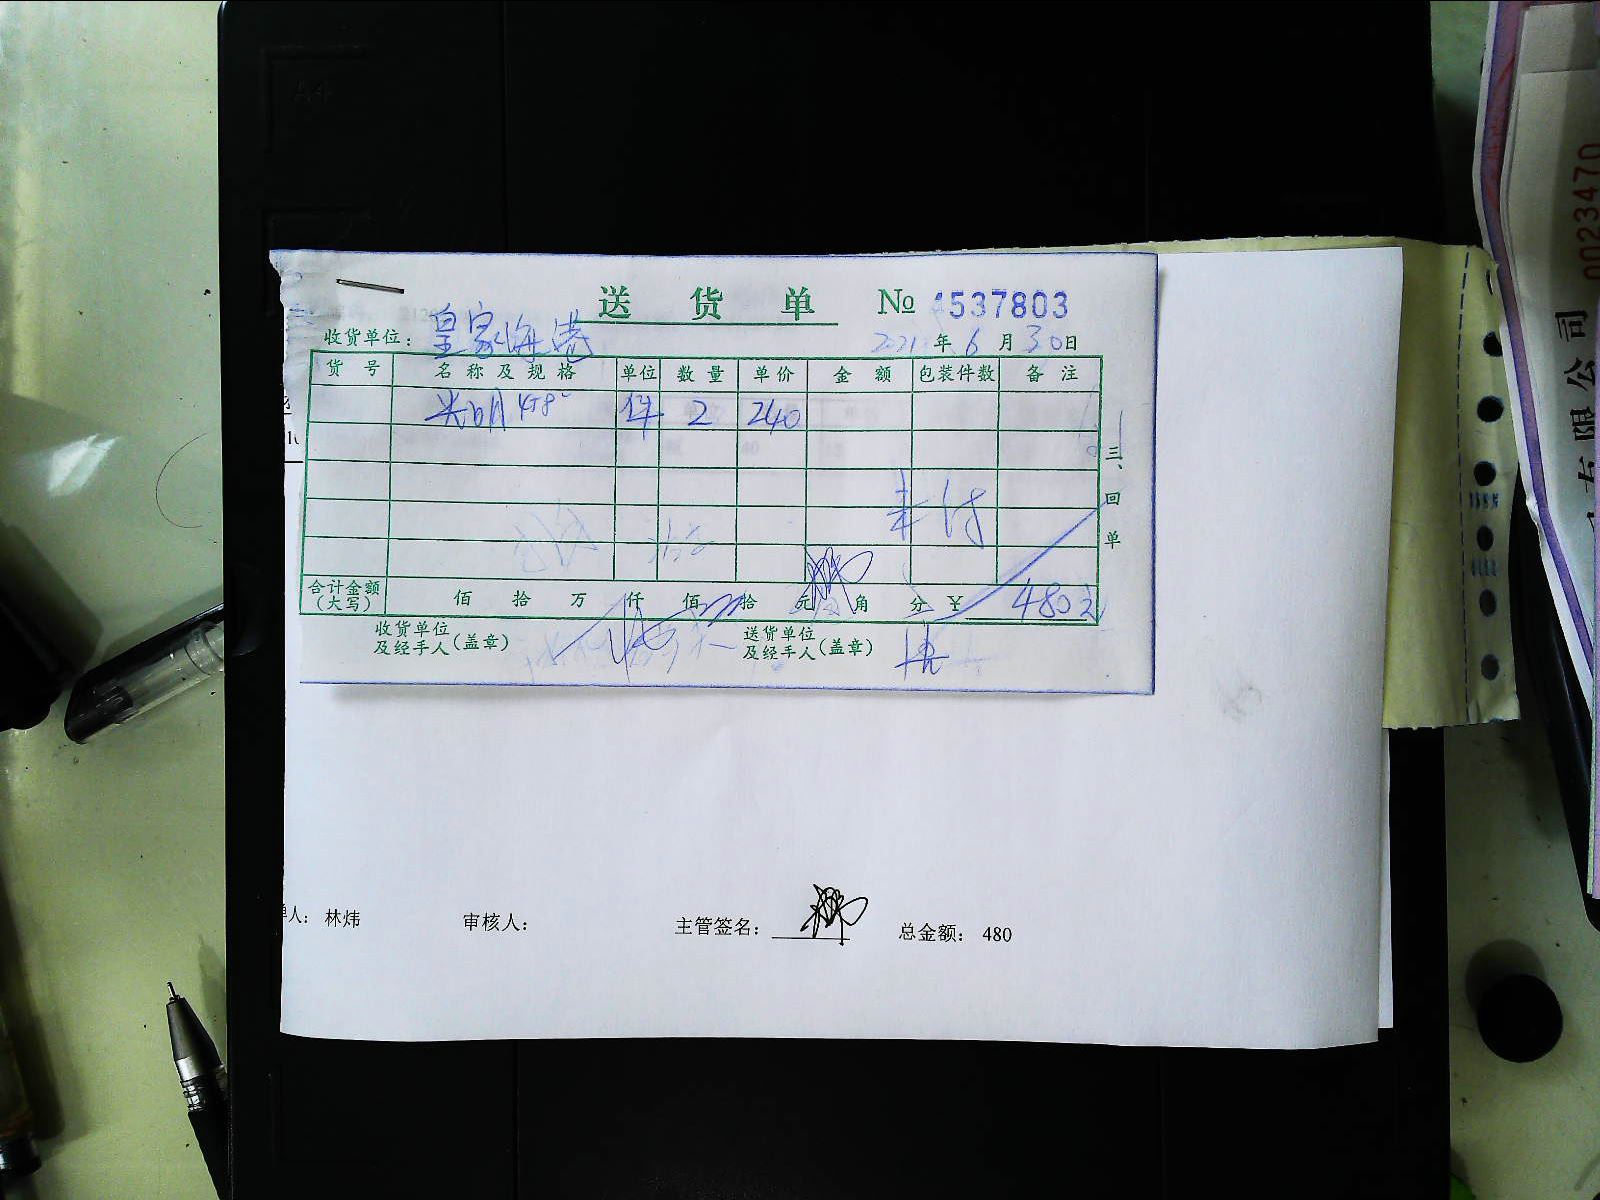 A4
送货单 № 4537803
收货单位：皇家海港 2021年6月30日
货号 名称及规格 单位 数量 单价 金额 包装件数 备注
光明 件 2 240
未付
三、回单
合计金额（大写） 佰 拾 万 仟 佰 拾 元 角 分 ¥ 480元
收货单位及经手人（盖章） 送货单位及经手人（盖章）
单人：林炜 审核人： 主管签名： 总金额：480
0023470
有限公司